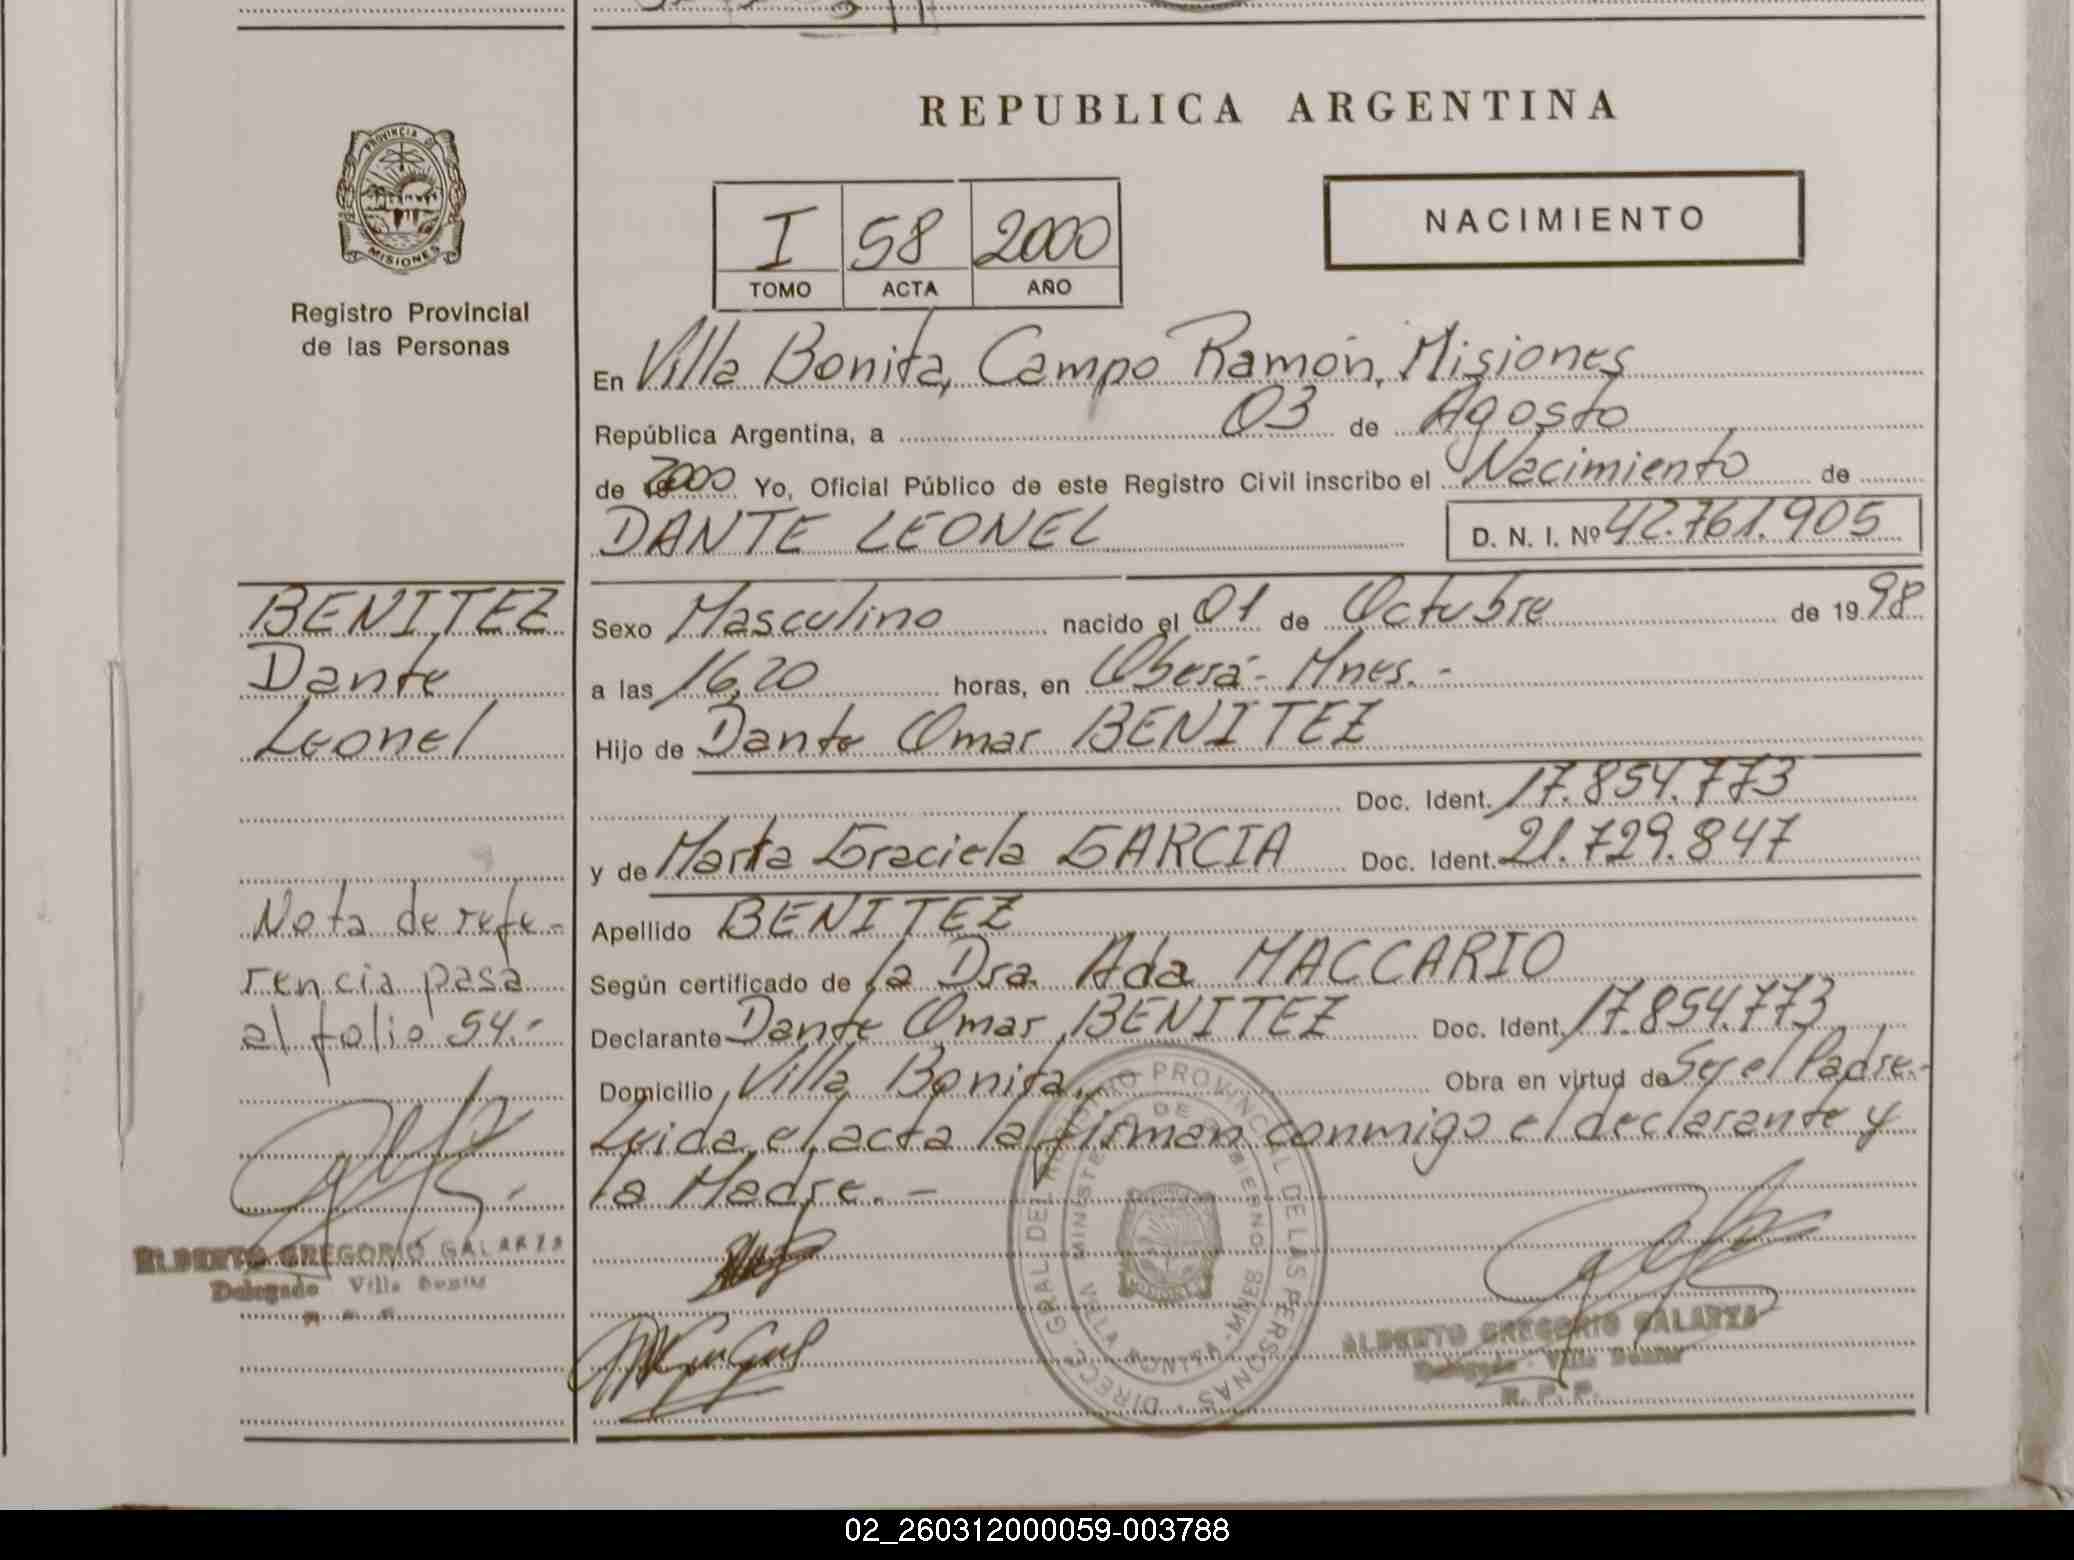 REPUBLICA ARGENTINA
PROVINCIA DE
MISIONES
Registro Provincial
de las Personas
I 58 2000
TOMO ACTA AÑO
NACIMIENTO
En Villa Bonita, Campo Ramón, Misiones
República Argentina, a 03 de Agosto
de 2000 Yo, Oficial Público de este Registro Civil inscribo el Nacimiento de
DANTE LEONEL D. N. I. Nº 42.761.905
BENITEZ
Dante
Leonel
Sexo Masculino nacido el 01 de Octubre de 1998
a las 16,20 horas, en Oberá - Mnes. -
Hijo de Dante Omar BENITEZ
Doc. Ident. 17.854.773
y de Marta Graciela GARCIA Doc. Ident. 21.729.847
Apellido BENITEZ
Según certificado de la Dra. Ada MACCARIO
Declarante Dante Omar BENITEZ Doc. Ident. 17.854.773
Domicilio Villa Bonita, Obra en virtud de Ser el Padre.-
Leida el acta la firman conmigo el declarante y
la Madre. -
Nota de refe-
rencia pasa
al folio 54.-
ALBERTO GREGORIO GALARZA
Delegado Villa Bonita
DIRECC. GRAL DEL REGISTRO PROVINCIAL DE LAS PERSONAS
MINISTERIO DE GOBIERNO
VILLA BONITA - MNES
ALBERTO GREGORIO GALARZA
Delegado - Villa Bonita
R. P. P.
02_260312000059-003788